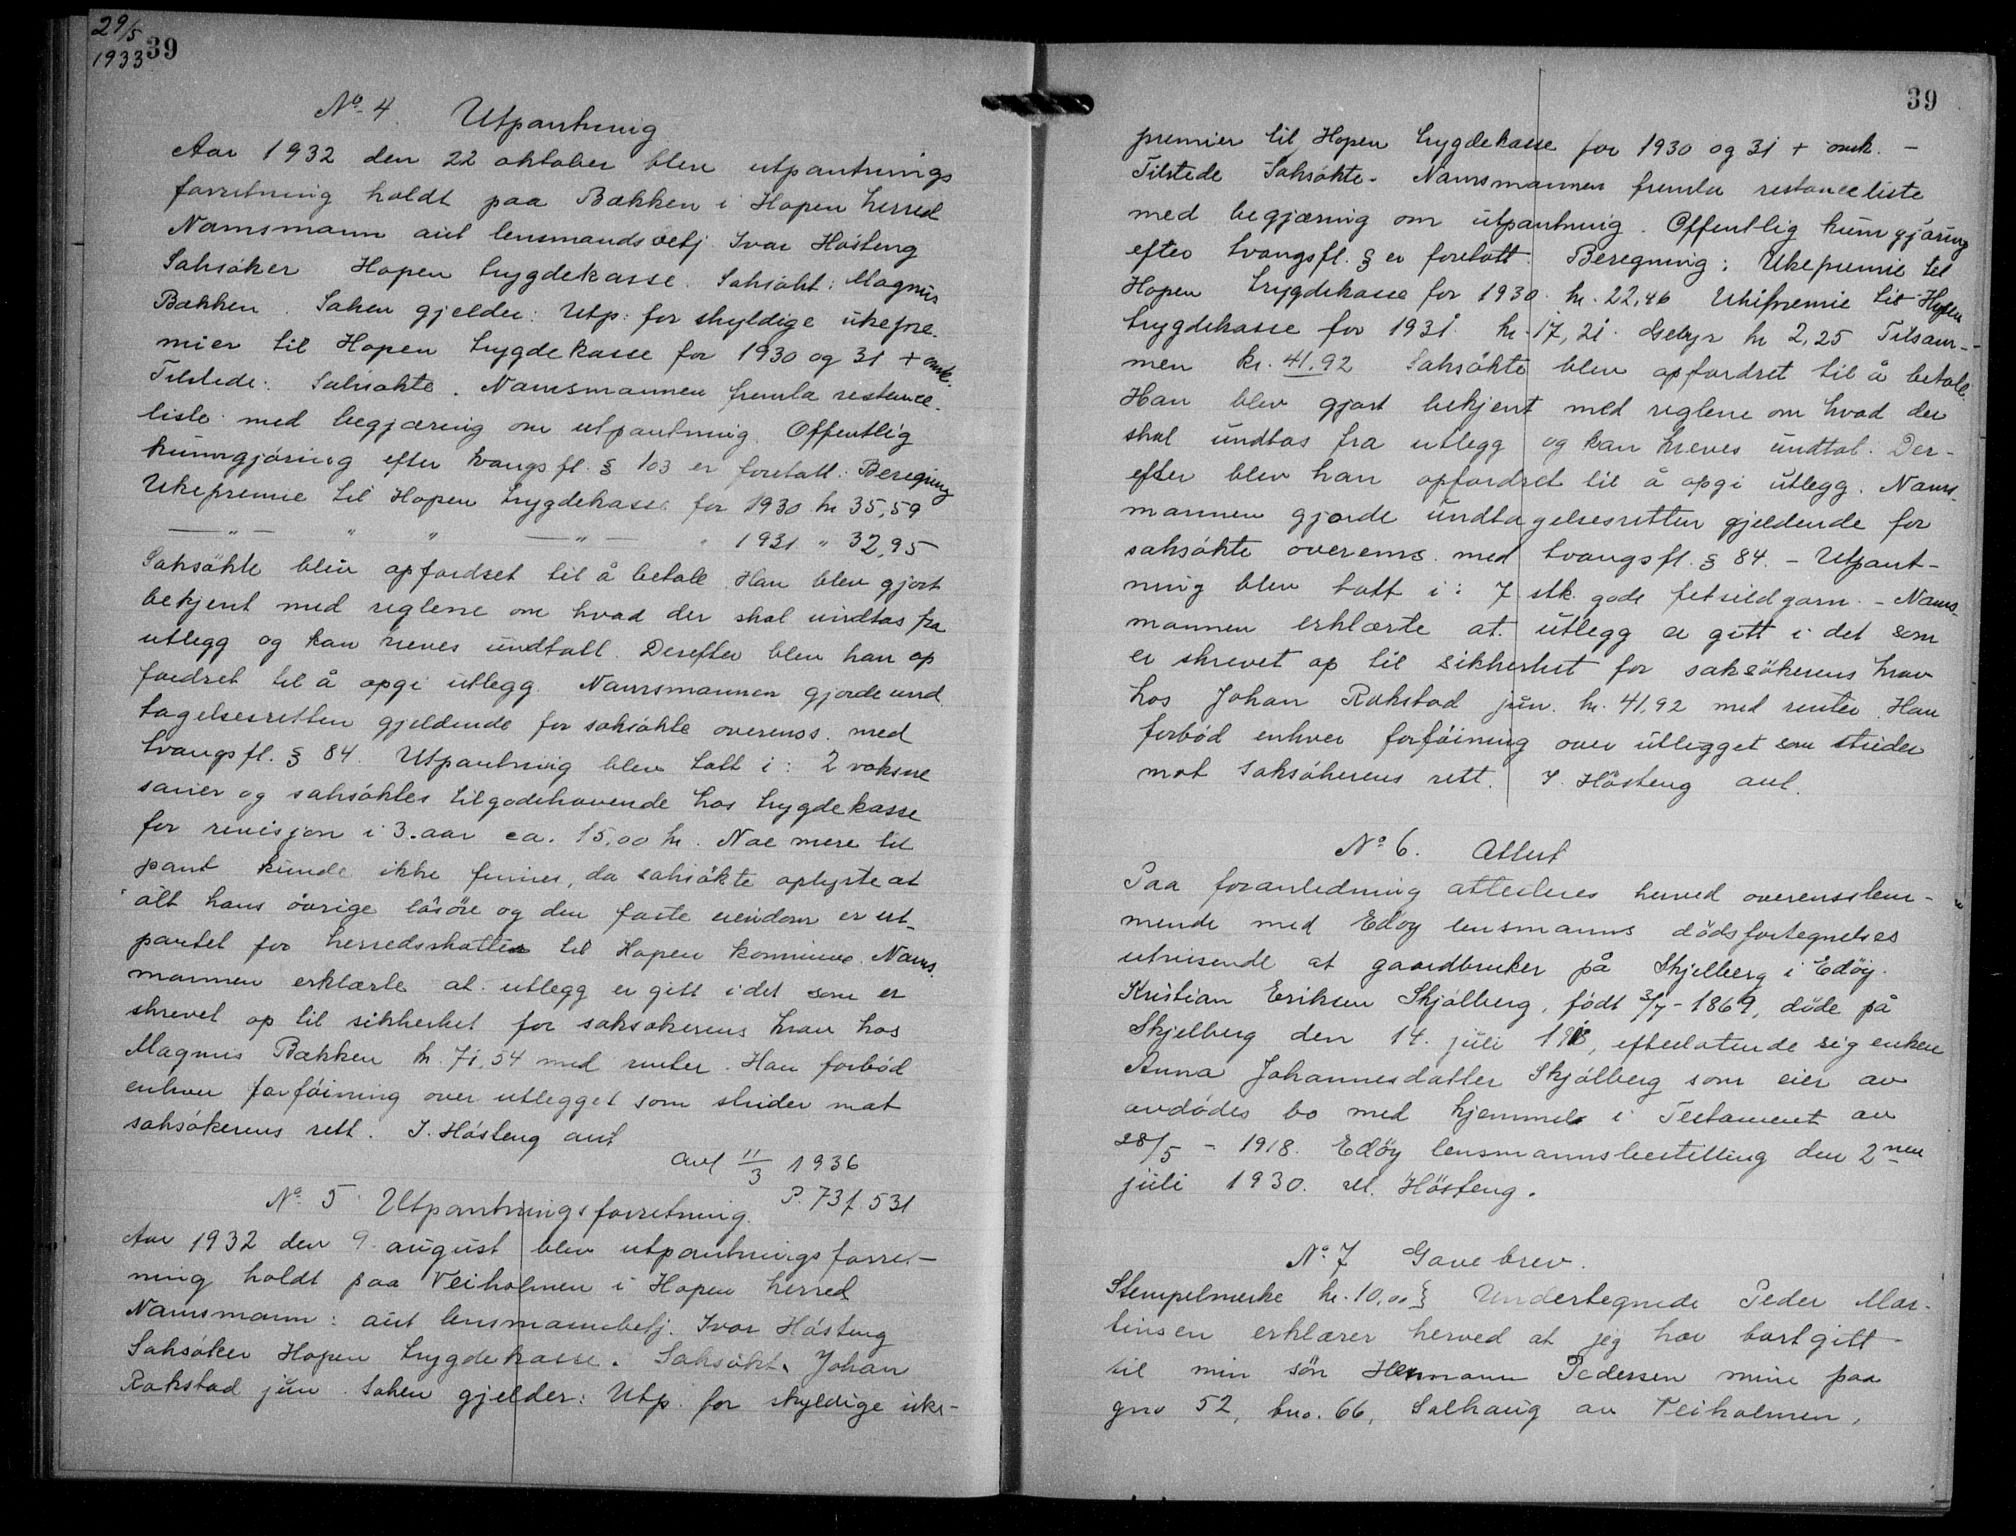 29/5
1933
39
No 4. Utpantning
Aar 1932 den 22 oktober blev utpantnings
forretning holdt paa Bækken i Hopen herred
Namsmann aut lensmandsbetj Ivar Hösteng
Saksöker Hopen trygdekasse. Saksökt: Magnus
Bækken. Saken gjelder: Utp: for skyldige ukepre-
mier til Hopen trygdekasse for 1930 og 31 + omk.
Tilstede: Saksökte. Namsmannen fremla restance-
liste med begjæring om utpantning. Offentlig
kunngjöring efter tvangsfl. § 103 er foretatt: Beregning
Ukepremie til Hopen trygdekasse for 1930 kr 35,59
—"— " " —"— " 1931 " 32,95
Saksökte blev opfordret til å betale. Han blev gjort
bekjent med reglene om hvad der skal undtas fra
utlegg og kan kreves undtatt. Derefter blev han op
fordret til å opgi utlegg. Namsmannen gjorde und
tagelsesretten gjeldende for saksökte overenss. med
tvangsfl. § 84. Utpantning blev tatt i: 2 voksne
sauer og saksöktes tilgodehavende hos trygdekasse
for revisjon i 3. aar ca. 15,00 kr. Noe mere til
pant kunde ikke finnes, da saksökte oplyste at
alt hans övrige lösöre og den faste eiendom er ut-
pantet for herredsskatter til Hopen kommune. Nams-
mannen erklærte at utlegg er gitt i det som er
skrevet op til sikkerhet for saksökerens krav hos
Magnus Bækken kr. 71,54 med renter. Han forbød
enhver forföining over utlegget som strider mot
saksökerens rett. I. Hösteng aut
Avl 11/3 1936
P. 737. 531
No 5 Utpantningsforretning.
Aar 1932 den 9. august blev utpantningsforret-
ning holdt paa Veiholmen i Hopen herred
Namsmann: aut lensmannsbetj. Ivar Hösteng
Saksöker Hopen trygdekasse. Saksökt. Johan
Rokstad jun. Saken gjelder: Utp. for skyldige uke-
39
premier til Hopen trygdekasse for 1930 og 31 + omk. -
Tilstede Saksökte. Namsmannen fremla restanceliste
med begjæring om utpantning. Offentlig kunngjöring
efter tvangsfl. § er foretatt. Beregning: Ukepremie til
Hopen trygdekasse for 1930. kr. 22,46 Ukepremie til Hopen
trygdekasse for 1931 kr. 17,21. Gebyr kr 2,25 Tilsam-
men kr. 41,92 Saksökte blev opfordret til å betale.
Han blev gjort bekjent med reglene om hvad der
skal undtas fra utlegg og kan kreves undtat. Der-
efter blev han opfordret til å opgi utlegg. Nams-
mannen gjorde undtagelsesretten gjeldende for
saksökte overens. med tvangsfl. § 84. - Utpant-
ning blev tatt i: 7 stk. gode fetsildgarn. - Nams-
mannen erklærte at utlegg er gitt i det som
er skrevet op til sikkerhet for saksökerens krav
hos Johan Rokstad jun. kr. 41,92 med renter. Han
forböd enhver forföining over utlegget som strider
mot saksökerens rett. I. Hösteng aut.
No 6. Attest
Paa foranledning attesteres herved overensstem-
mende med Edöy lensmanns dödsfortegnelses
utvisende at gaardbruker på Skjelberg i Edöy.
Kristian Eriksen Skjölberg, født 3/7 - 1869, döde på
Skjelberg den 14. juli 1918, efterlatende sig enken
Anna Johannesdatter Skjölberg som eier av
avdödes bo med hjemmel i Testament av
28/5 - 1918. Edöy lensmannsbestilling den 2nen
juli 1930. Hösteng.
No 7 Gavebrev.
Stempelmerke kr. 10,00 } Undertegnede Peder Mar-
tinsen erklærer herved at jeg har bortgitt
til min sön Hermann Pedersen mine paa
gno 52, bno. 66, Solhaug av Veiholmen,